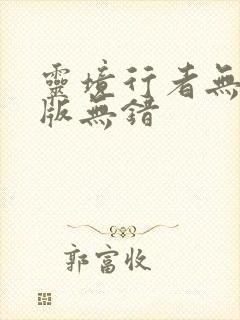 靈境行者無
版無錯
郭富收